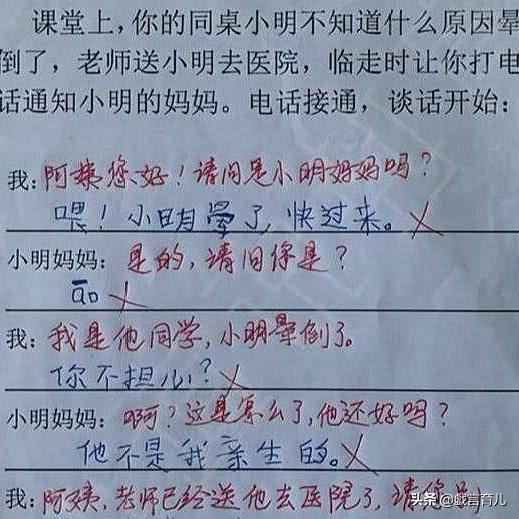 课堂上，你的同桌小明不知道什么原因晕
倒了，老师送小明去医院，临走时让你打电
话通知小明的妈妈。电话接通，谈话开始：
我：阿姨您好！请问是小明妈妈吗？
喂！小明晕了，快过来。
小明妈妈：是的，请问你是？
āo
我：我是他同学，小明晕倒了。
你不担心？
小明妈妈：啊？这是怎么了，他还好吗？
他不是我亲生的。
我：阿姨，老师已经送他去医院了，请您别
头条 @戏言育儿